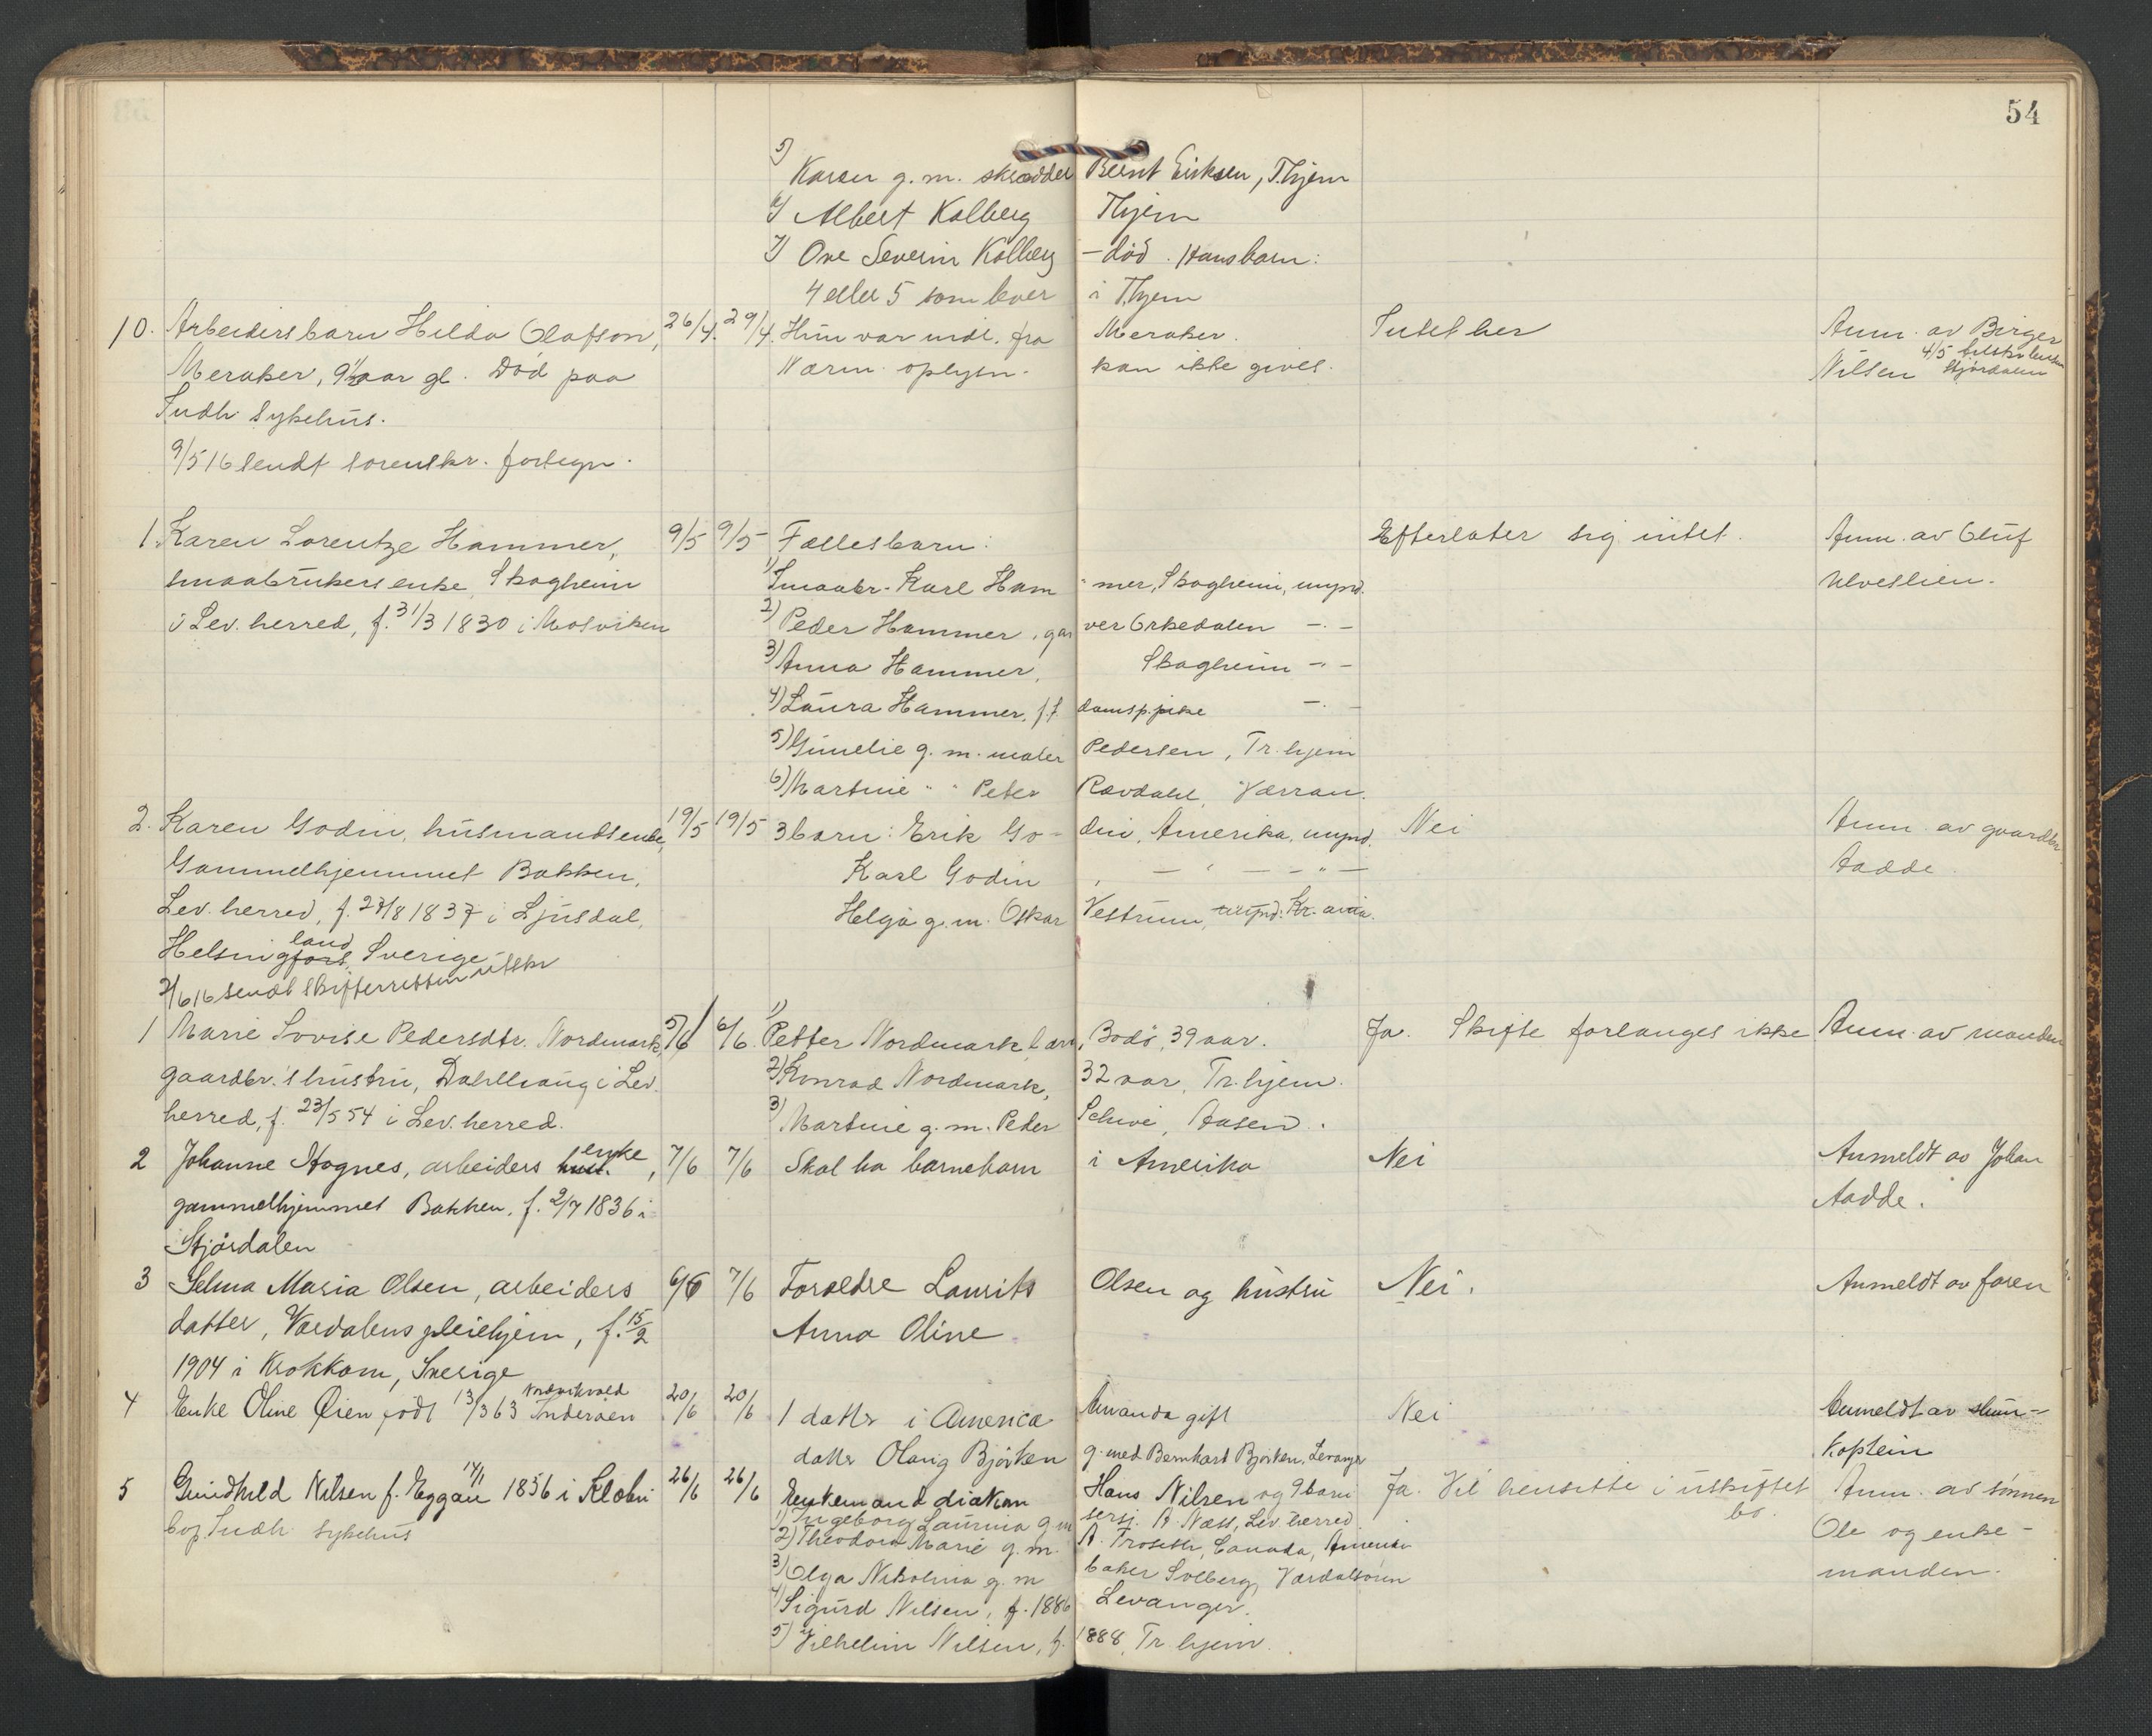 54
5) Karen g. m. skrædder Bernt Eriksen, Thjem
6) Albert Kolberg Thjem
7) Ove Severin Kolberg - død. Hans barn:
4 eller 5 som lever i Thjem
10. Arbeidersbarn Hilda Olafson, 26/4. 29/4. Hun var indl. fra Meraker. Intet her Anm. av Birger
Meraker, 9 1/2 aar gl. Død paa Nærm. oplysn. kan ikke gives. Nilsen 4/5 Stjørdalen
Indh. sykehus.
9/5 16 sendt sorenskr. fortegn.
1. Karen Lorentze Hammer, 9/5 9/5 Fællesbarn: Efterlater sig intet. Anm. av Oluf
smaabrukers enke, Skogheim 1) Smaabr. Karl Hammer, Skogheim, mynd. Ulveslien.
i Lev. herred, f. 31/3 1830 i Mosviken 2) Peder Hammer, garver Orkedalen -"-
3) Anna Hammer, Skogheim -"-
4) Laura Hammer, f.t. damsp.pike -"-
5) Gunelie g. m. maler Pedersen, Tr.hjem
6) Martine " " Peter Ravdahl, Værran.
2. Karen Godin, husmandsenke, 19/5 19/5 3 barn: Erik Godin, Amerika, mynd. Nei Anm. av gaardbr.
Gammelhjemmet Bakken, Karl Godin, - " - - " - Aadde
Lev. herred, f. 27/8 1837 i Ljusdal, Helga g. m. Oskar Vestrum, mynd. Kr.ania.
Helsingfors land, Sverige
2/6 16 sendt skifteretten utskr
1 Marie Lovise Pedersdtr. Nordmark, 5/6 6/6. 1) Petter Nordmark, Bodø, 39 aar. Ja. Skifte forlanges ikke Anm. av manden
gaardbr.'s hustru, Dahlhaug i Lev. 2) Konrad Nordmark, 32 aar, Tr.hjem.
herred, f. 23/5 54 i Lev. herred. 3) Martine g. m. Peder Schive, Aasen.
2 Johanne Hognes, arbeiders hust. enke, 7/6 7/6 Skal ha barnebarn i Amerika Nei Anmeldt av Johan
gammelhjemmet Bakken, f. 2/7 1836 i Aadde.
Stjørdalen
3 Selma Maria Olsen, arbeiders 6/6 7/6 Foreldre Laurits Olsen og hustru Nei. Anmeldt av faren
datter, Værdalens pleiehjem, f. 15/2 Anna Oline
1904 i Krokkom, Sverige
4 Enke Oline Øien født 13/3 63 Inderøen 20/6 20/6 1 datter i America Amanda gift Nei Anmeldt av
datter Olaug Bjørken g. med Bernhart Bjørken, Levanger Koptein
5 Gundhild Nilsen f. Eggan 14/1 1856 i Klæbu 26/6 26/6 Enkemand diakon Hans Nilsen og 9 barn Ja. Vil hensitte i uskiftet bo. Anm. av sønnen
bop. Indh. sykehus 1) Ingeborg Laurnia g. m. sersj. A. Næss, Lev. herred. Ole og enke-
2) Theodora Marie g. m. A. Froseth, Canada, Amerika manden.
3) Olga Nikolina g. m. baker Solberg, Værdalsøren
4) Sigurd Nilsen, f. 1886 Levanger.
5) Vilhelm Nilsen, f. 1888, Tr.hjem.